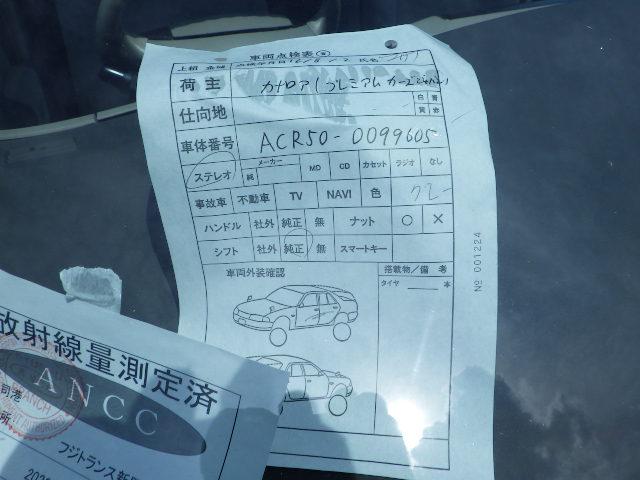 車両点検表
荷主 カトロア(プレミアム カーズジャパン)
仕向地 白 青
黄 赤
車体番号 ACR50-0099605
ステレオ メーカー 純 MD CD カセット ラジオ なし
事故車 不動車 TV NAVI 色 グレー
ハンドル 社外 純正 無 ナット ○ ×
シフト 社外 純正 無 スマートキー
車両外装確認 搭載物/備考
タイヤ 本
No 001224
放射線量測定済
ANCC
司港
フジトランス新
所